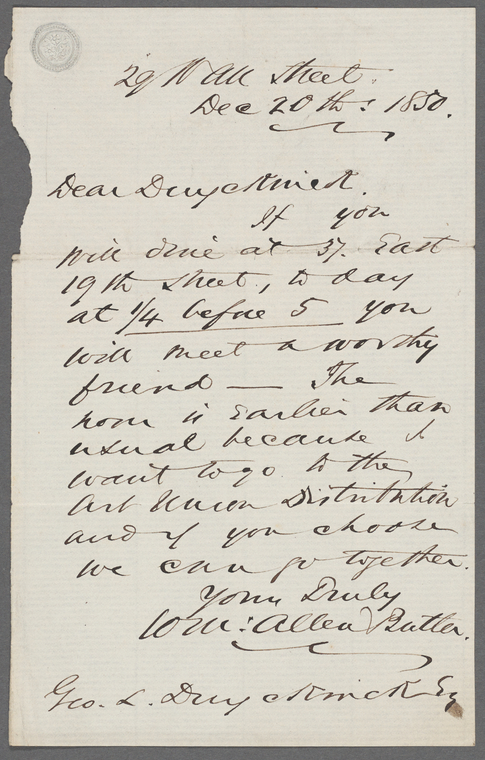 29 Wall Street.
Dec 20th: 1850.
Dear Duyckinck.
If you
will dine at 37. East
19th street, to day
at 1/4 before 5 you
will meet a worthy
friend — The
hour is earlier than
usual because I
want to go to the
Art Union Distribution
and if you choose
we can go together.
Yours Truly
Wm: Allen Butler.
Geo. L. Duyckinck Esq